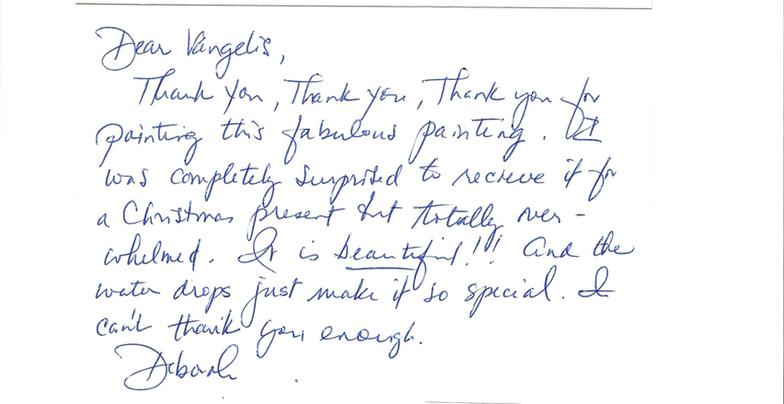 Dear Vangelis,
Thank you, Thank you, Thank you for
painting this fabulous painting. I
was completely surprised to recieve it for
a Christmas present but totally over-
whelmed. It is beautiful!!! And the
water drops just make it so special. I
can't thank you enough.
Deborah